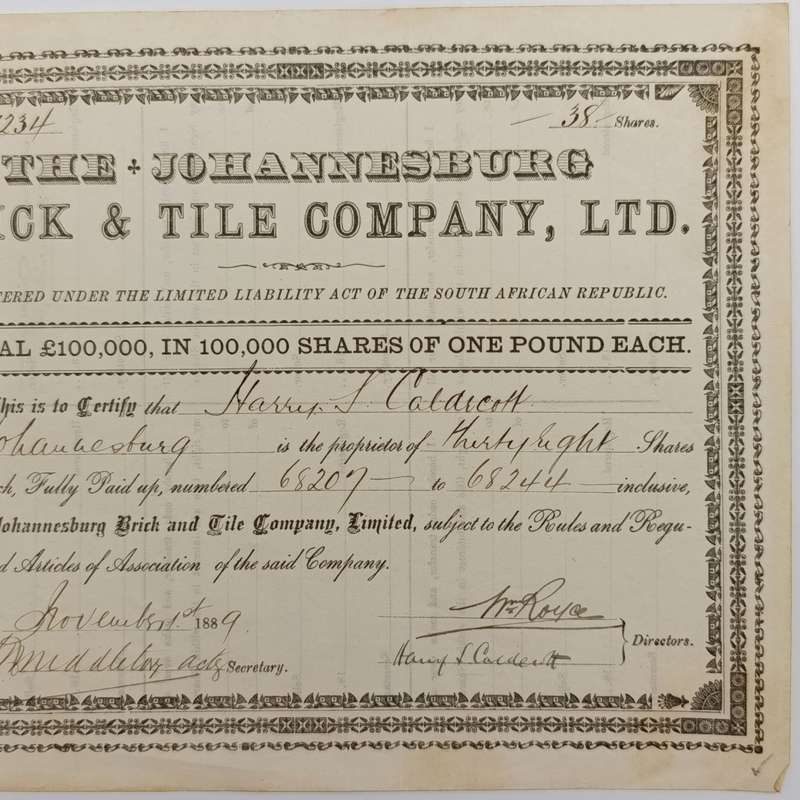 234 38 Shares.
THE JOHANNESBURG
ICK & TILE COMPANY, LTD.
TERED UNDER THE LIMITED LIABILITY ACT OF THE SOUTH AFRICAN REPUBLIC.
AL £100,000, IN 100,000 SHARES OF ONE POUND EACH.
This is to Certify that Harry S. Caldecott
ohannesburg is the proprietor of thirty eight Shares
ch, Fully Paid up, numbered 68207 to 68244 inclusive,
Johannesburg Brick and Tile Company, Limited, subject to the Rules and Regu-
d Articles of Association of the said Company.
November 1st 1889 Wm Royce
Directors.
Middleton actg Secretary. Harry S Caldecott